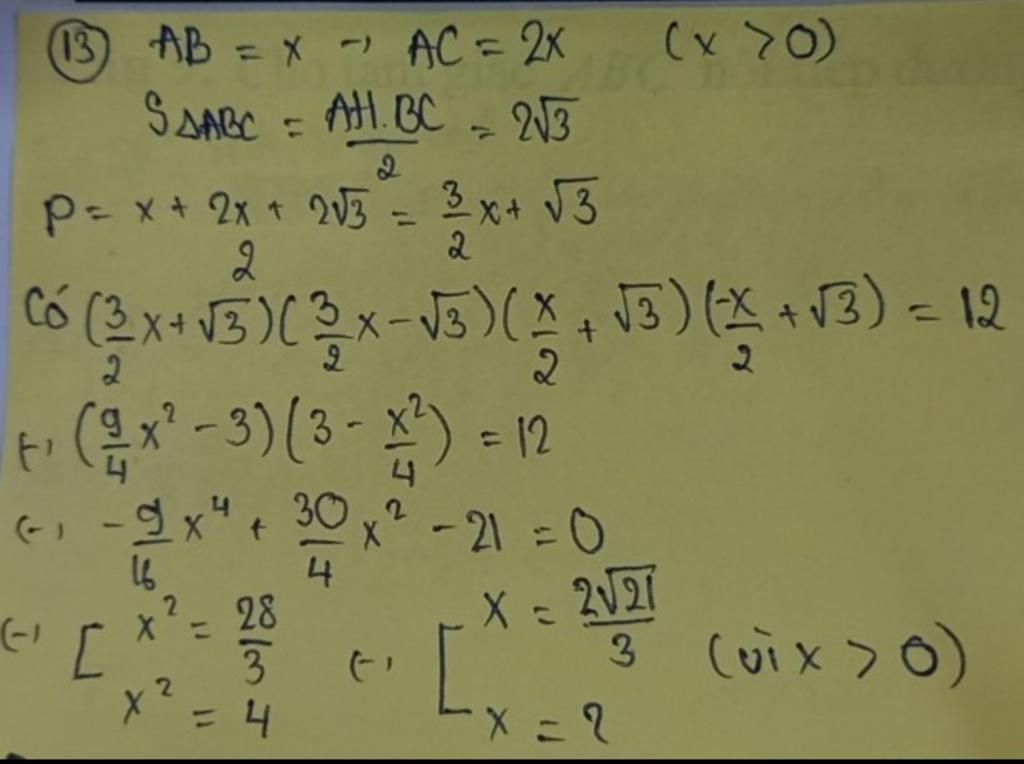 (13) AB = x → AC = 2x (x > 0)
SΔABC = AH.BC/2 = 2√3
p = x + 2x + 2√3/2 = 3/2 x + √3
Có (3/2 x + √3)(3/2 x - √3)(x/2 + √3)(-x/2 + √3) = 12
(-) (9/4 x² - 3)(3 - x²/4) = 12
(-) -9/16 x⁴ + 30/4 x² - 21 = 0
(-) [ x² = 28/3 (-) [ x = 2√21/3 (vì x > 0)
x² = 4 x = 2